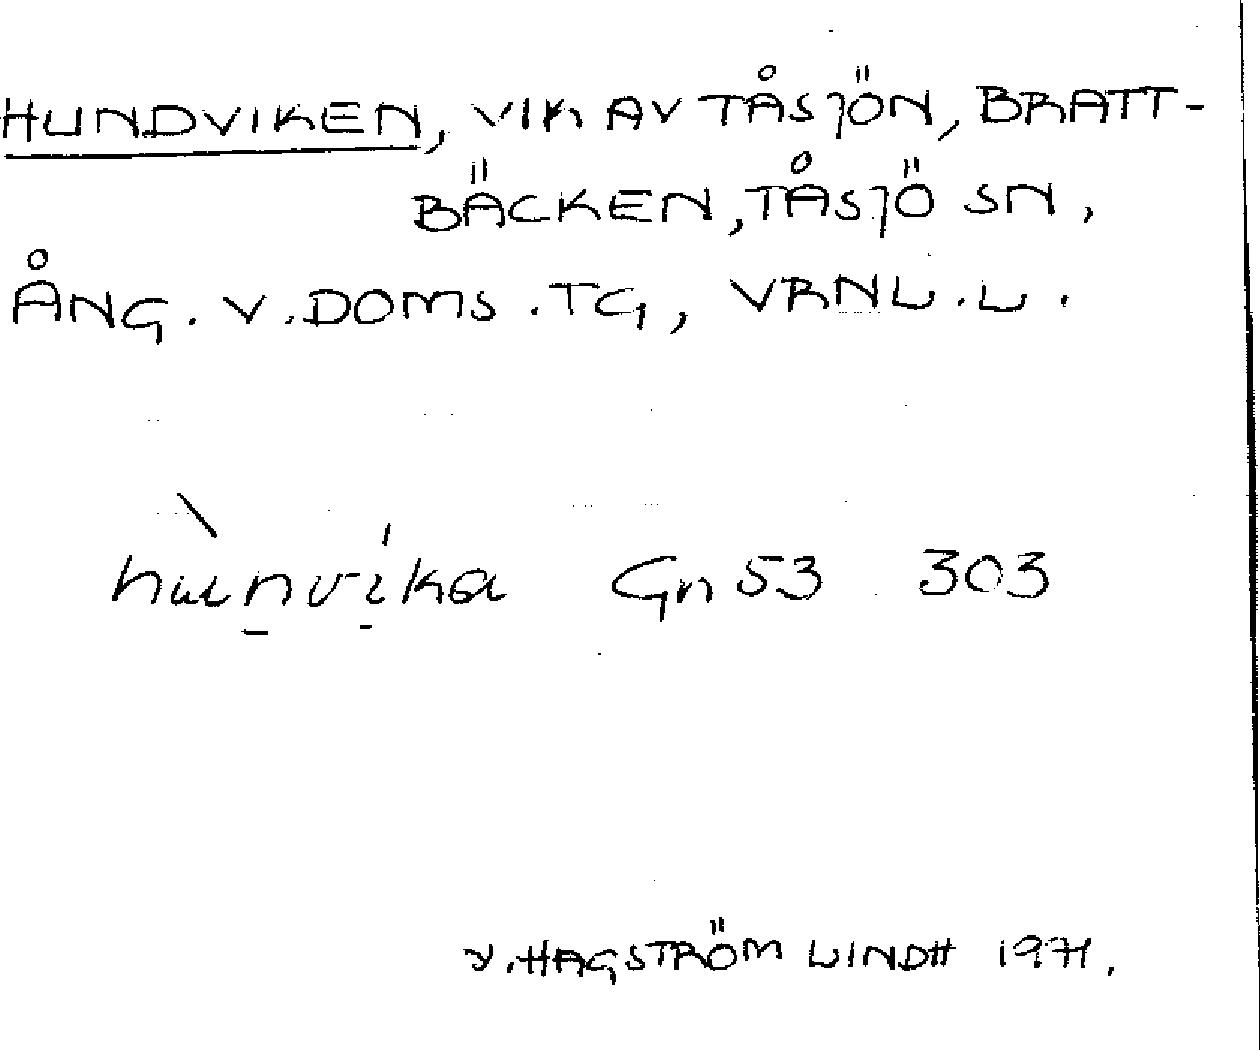 HUNDVIKEN, VIK AV TÅSJÖN, BRATT-
BÄCKEN, TÅSJÖ SN,
ÅNG. V. DOMS. TG, VRNL. L.
Gn 53 303
HAGSTRÖM LINDH 1971.